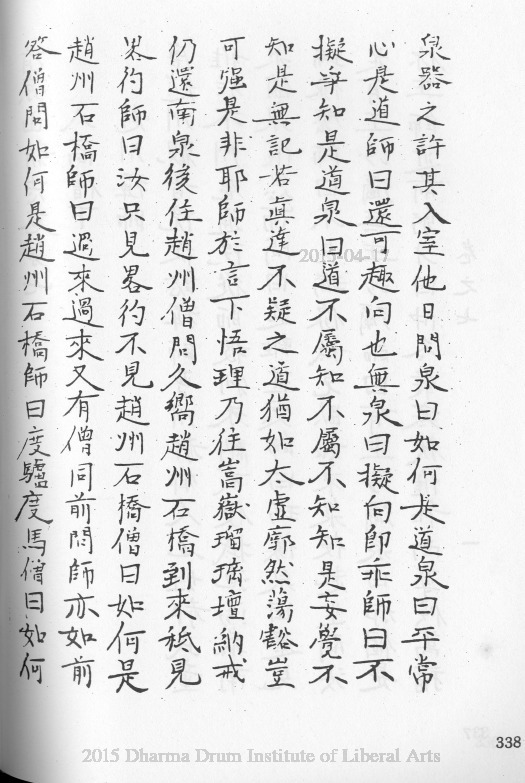 泉器之許其入室他日問泉曰如何是道泉曰平常
心是道師曰還可趣向也無泉曰擬向即乖師曰不
擬爭知是道泉曰道不屬知不屬不知知是妄覺不
知是無記若真達不疑之道猶如太虛廓然蕩豁豈
可强是非耶師於言下悟理乃往嵩嶽瑠璃壇納戒
仍還南泉後住趙州僧問久嚮趙州石橋到來秖見
畧彴師曰汝只見畧彴不見趙州石橋僧曰如何是
趙州石橋師曰過來過來又有僧同前問師亦如前
答僧問如何是趙州石橋師曰度驢度馬僧曰如何
338
2015-04-17
2015 Dharma Drum Institute of Liberal Arts